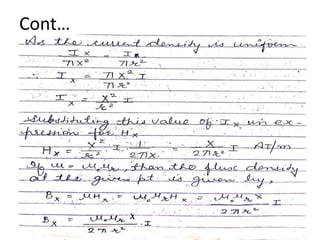 Cont...
As the current density is uniform
I x / π x² = I / π r²
∴ I x = π x² / π r² I
I x = x² / r² I
Substituting this value of I x in ex-
pression for H x
H x = x² / r² . I . 1 / 2πx = x / 2πr² I AT/m
If μ = μ₀ μr, then the flux density
at the given pt is given by,
B x = μ H x = μ₀ μr H x = μ₀ μr x / 2πr² I
B x = μ₀ μr x / 2πr² . I